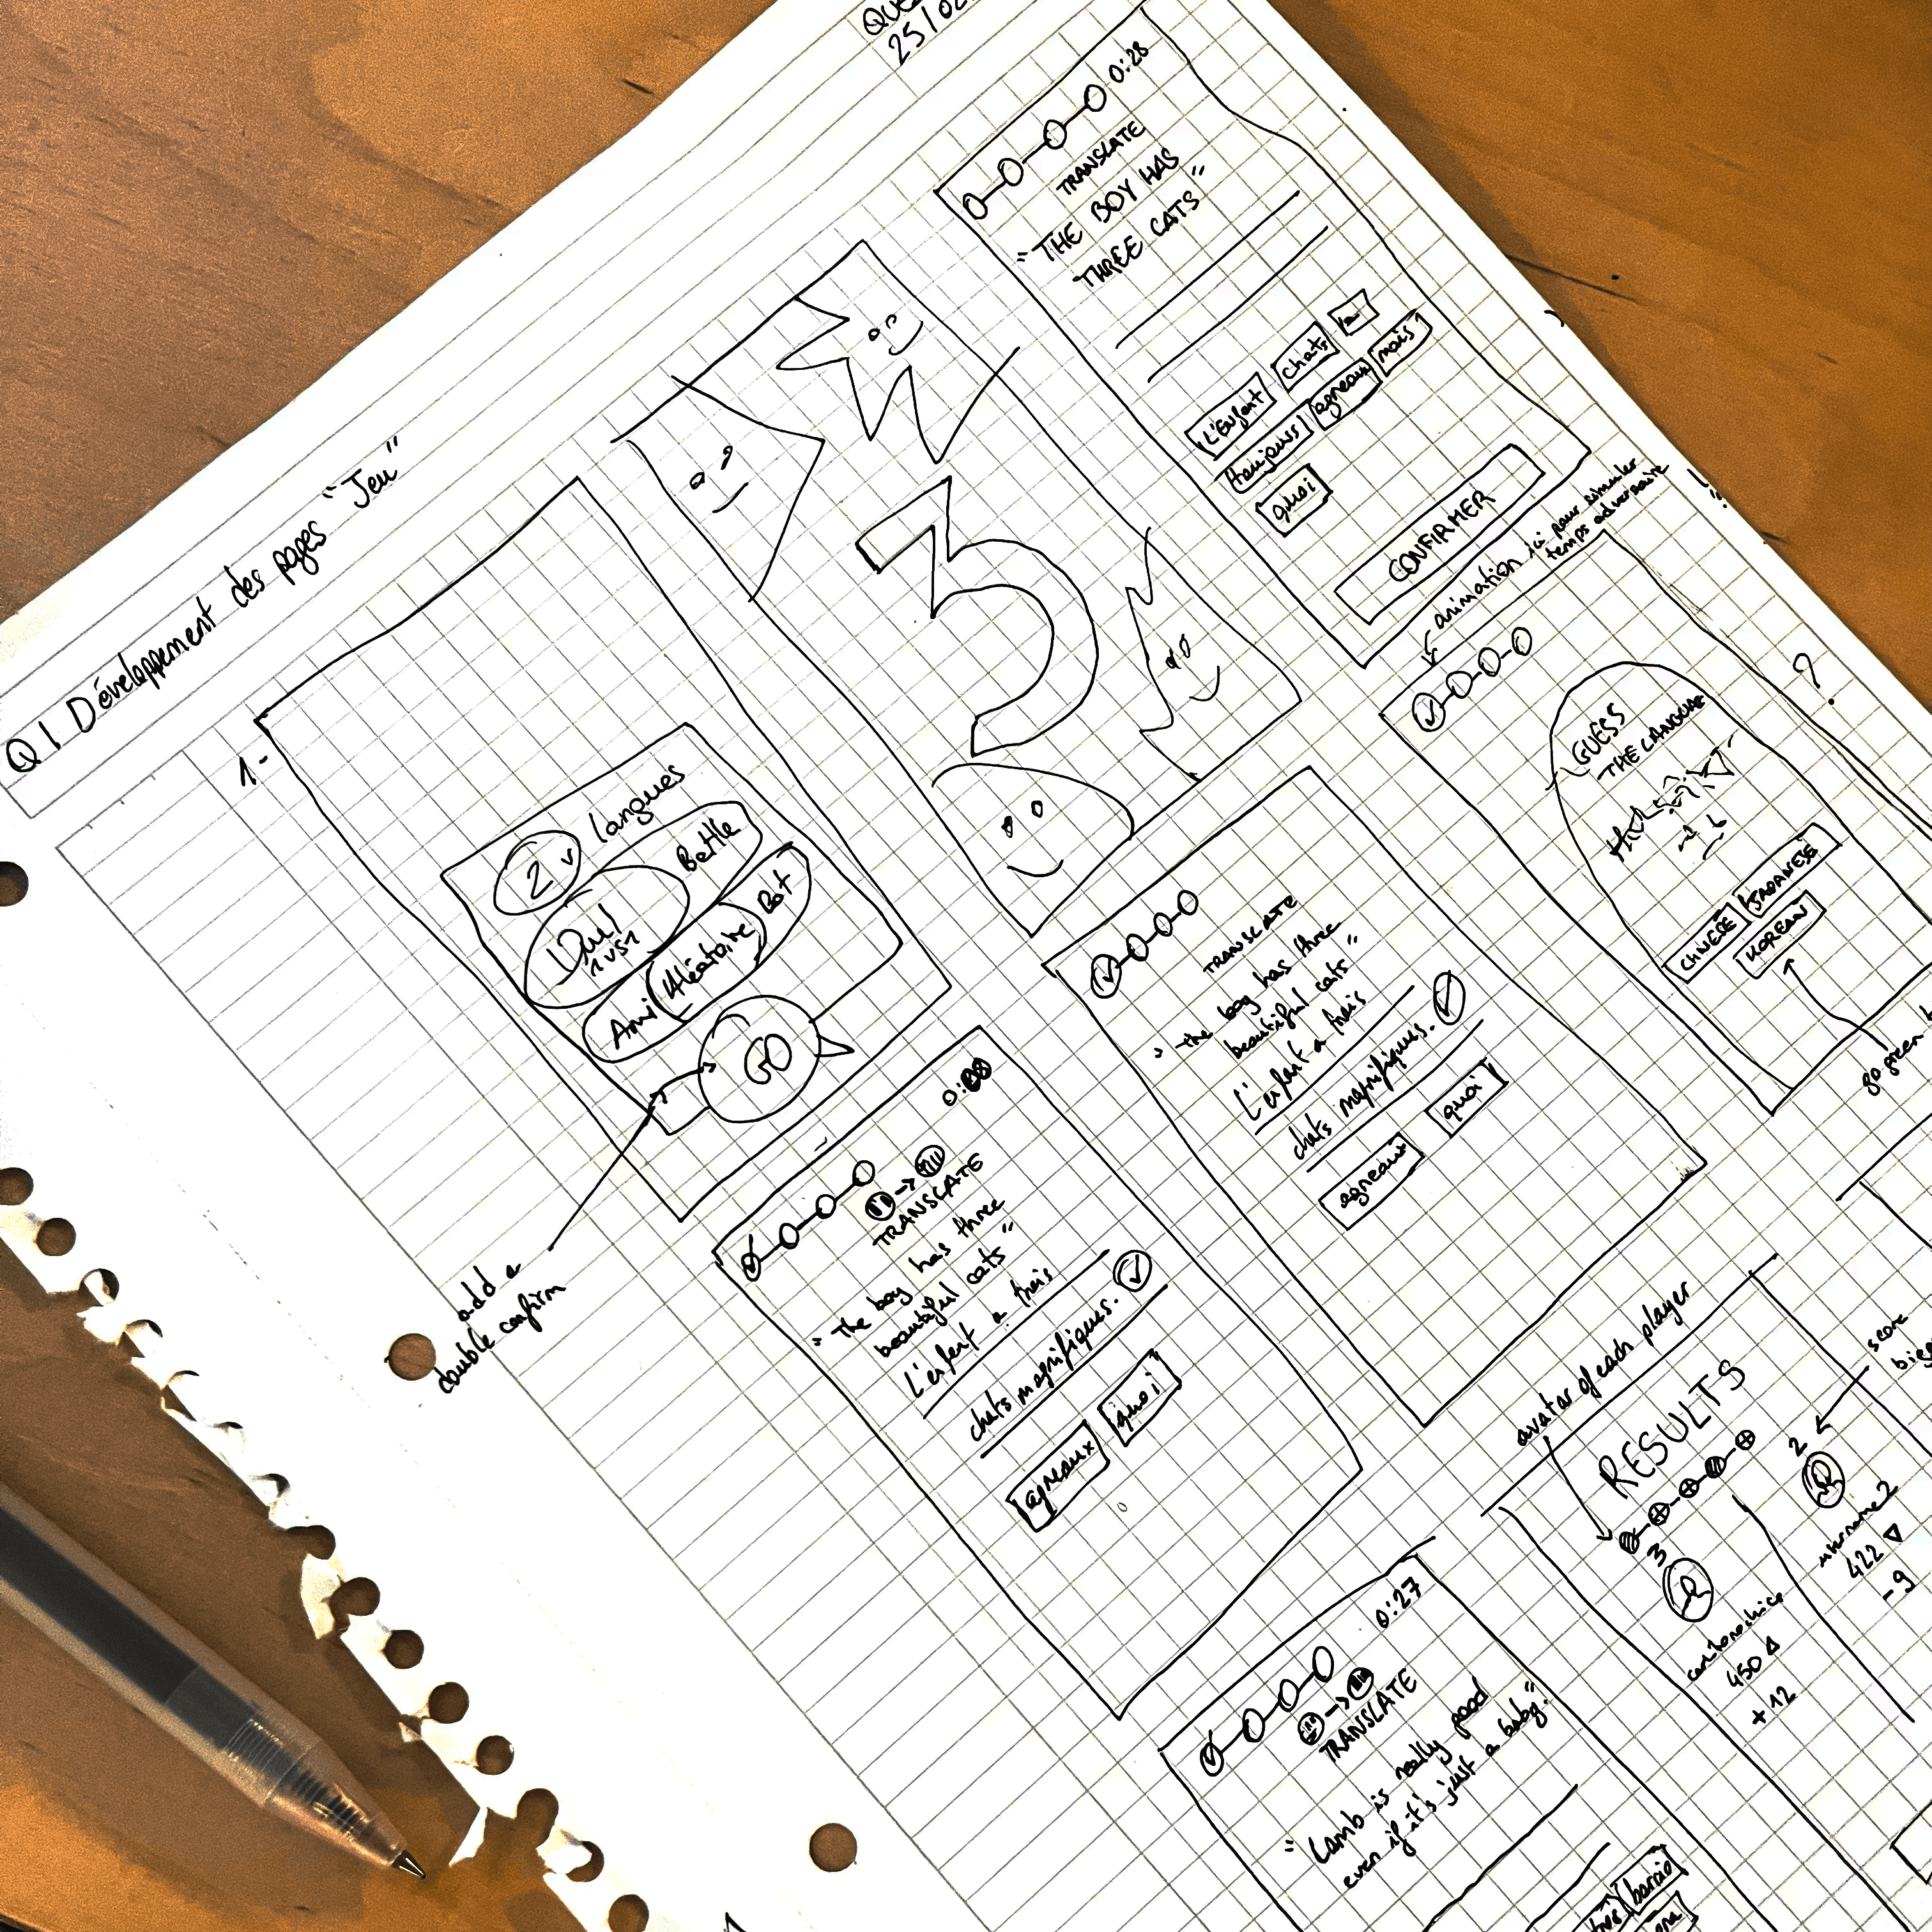 25/02
Q1 Développement des pages "Jeu"
1-
2 v langues
Duel
1vs1
Battle
Ami
Aléatoire
Bot
GO
add a
double confirm
3
0:28
TRANSLATE
"THE BOY HAS
THREE CATS"
L'Enfant
chats
toujours
agneaux
mais
quoi
CONFIRMER
animation ici pour simuler
temps adversaire
TRANSLATE
"The boy has three
beautiful cats"
L'enfant a trois
chats magnifiques.
agneaux
quoi
TRANSLATE
"the boy has three
beautiful cats"
L'enfant a trois
chats magnifiques.
agneaux
quoi
GUESS
THE LANGUAGE
CHINESE
JAPANESE
KOREAN
go green
?
0:27
TRANSLATE
"Lamb is really good
even if it's just a baby."
avatar of each player
RESULTS
score
3
2
450
+12
username2
422
-9